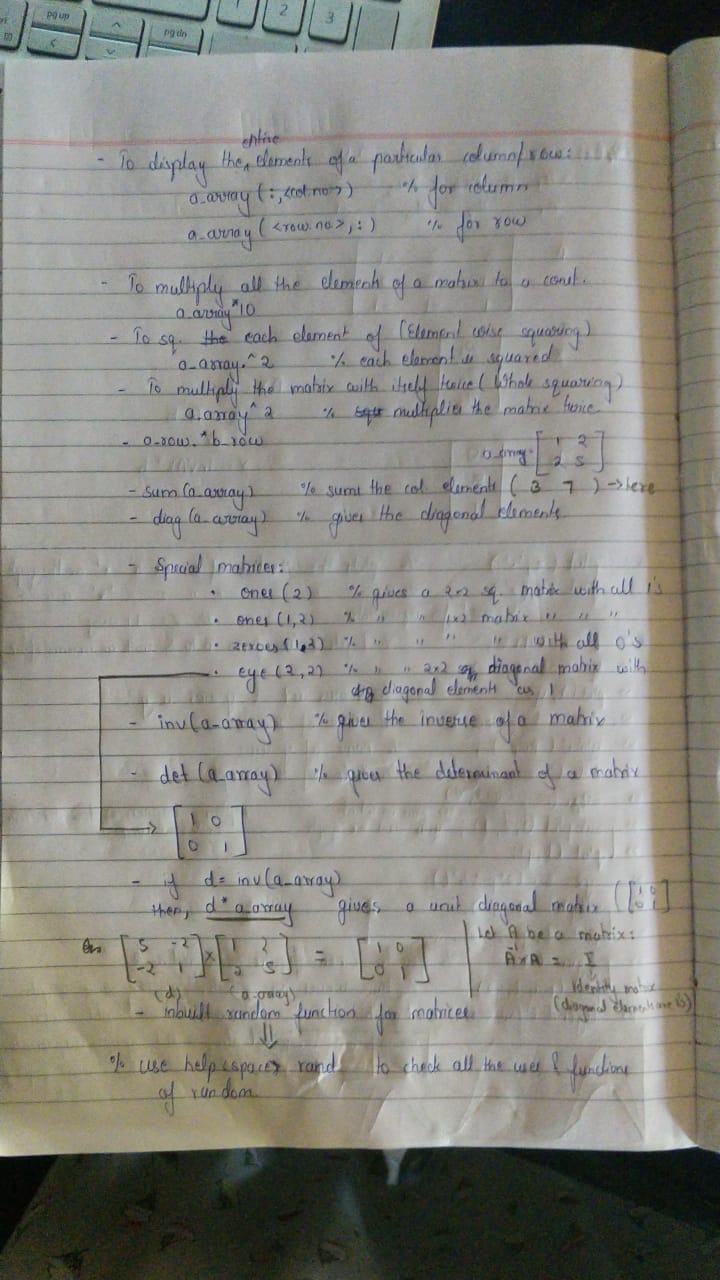 pg up
pg dn
2
3
entire
- To display the ^ elements of a particular column/row:
a_array (:,<col.no>) % for column
a_array (<row.no>,:) % for row
- To multiply all the elements of a matrix to a const.
a_array*10
- To sq. the each element of (Element wise squaring)
a_array.^2 % each element is squared
- To multiply the matrix with itself twice (Whole squaring)
a_array^2 % multiplies the matrix twice
- a_row.*b_row
a_array = [1 2
2 5]
- sum (a_array) % sums the col. elements (3 7) → here
- diag (a_array) % gives the diagonal elements
- Special matrices:
• ones (2) % gives a 2x2 sq. matrix with all 1's
• ones (1,2) % " " 1x2 matrix " " "
• zeroes (1,2) % " " " " with all 0's
• eye (2,2) % " " 2x2 sq. diagonal matrix with
diagonal elements as 1
- inv(a_array) % gives the inverse of a matrix
- det (a_array) % gives the determinant of a matrix
→ [1 0
0 1]
- if d = inv(a_array)
then, d*a_array gives a unit diagonal matrix ([1 0
0 1]
[5 -2
-2 1] x [1 2
2 5] = [1 0
0 1]
(d) (a_array)
Let A be a matrix:
A⁻¹xA = I
Identity matrix
(diagonal elements are 1s)
- inbuilt random function for matrices
⇓
% use help<space> rand to check all the uses & functions
of random